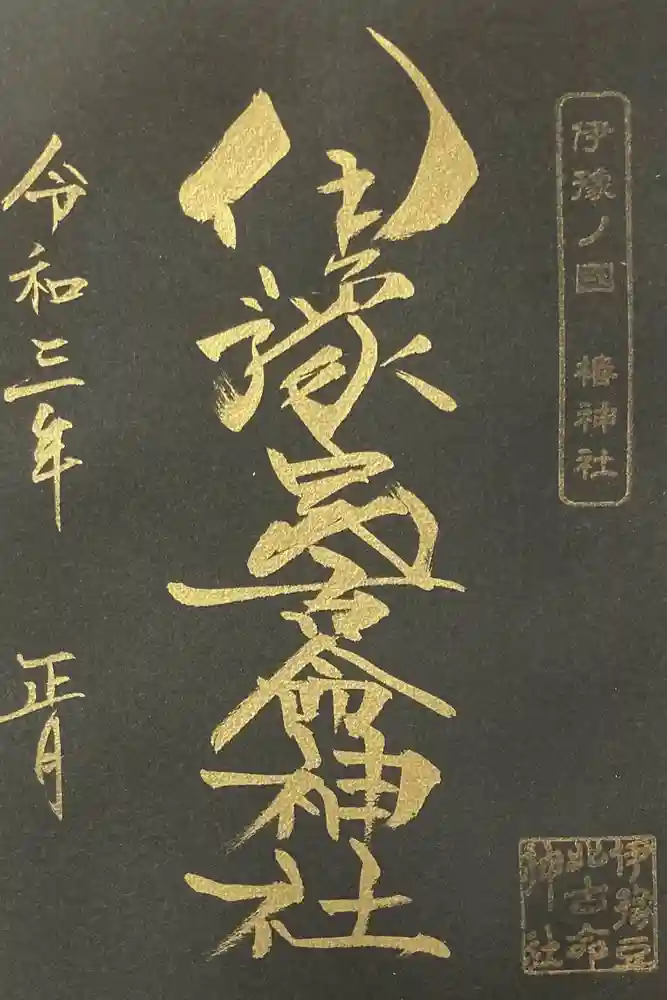 伊豫ノ國　椿神社
伊豫豆
比古命
神社
伊豫豆比古命神社
令和三年　正月